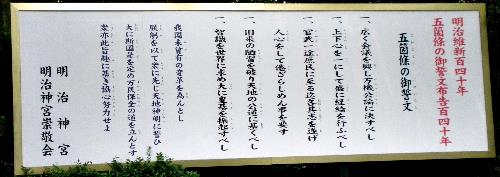 明治維新百四十年
五箇條の御誓文布告百四十年
五箇條の御誓文
一、広く会議を興し万機公論に決すべし
一、上下心を一にして盛に経綸を行ふべし
一、官武一途庶民に至る迄各其志を遂げ
人心をして倦ざらしめん事を要す
一、旧来の陋習を破り天地の公道に基くべし
一、智識を世界に求め大に皇基を振起すべし
我国未曾有の変革を為んとし
朕躬を以て衆に先じ天地神明に誓ひ
大に斯国是を定め万民保全の道を立んとす
衆亦此旨趣に基き協心努力せよ
明治神宮
明治神宮崇敬会